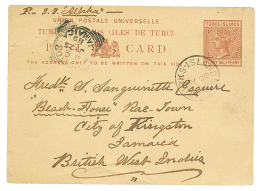 Per S.S. "Alpha"
UNION POSTALE UNIVERSELLE.
TURKS ISLANDS (ILES DE TURC)
POST CARD
THE ADDRESS ONLY TO BE WRITTEN ON THIS SIDE
TURKS ISLANDS
Fredk. S. Sanguinetti Esquire
"Beach House" Rae-Town
City of Kingston
Jamaica
British West Indies